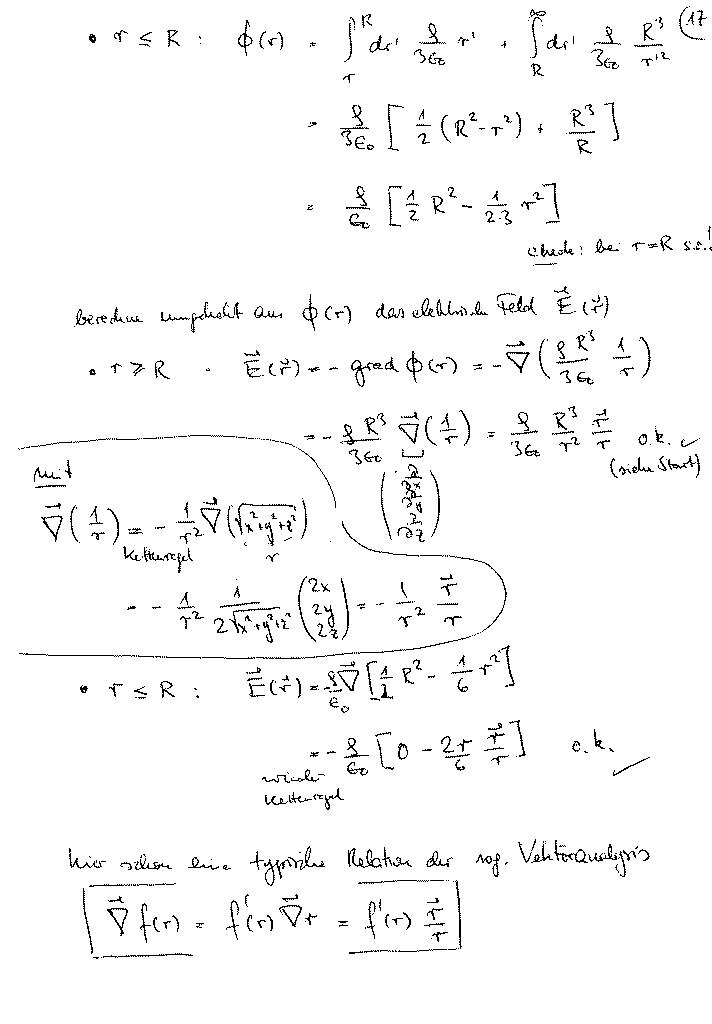 (17
• r ≤ R : ϕ(r) = ∫_r^R dr' ρ/(3ε₀) r' + ∫_R^∞ dr' ρ/(3ε₀) R³/r'²
= ρ/(3ε₀) [ 1/2 (R² - r²) + R³/R ]
= ρ/ε₀ [ 1/2 R² - 1/(2·3) r² ]
check: bei r=R s.o.!
berechne umgekehrt aus ϕ(r) das elektrische Feld E⃗(r⃗)
• r ≥ R . E⃗(r⃗) = - grad ϕ(r) = - ∇⃗ ( ρR³/(3ε₀) 1/r )
= - ρR³/(3ε₀) ∇⃗(1/r) = ρ/(3ε₀) R³/r² r⃗/r o.k. ✓
(siehe Start)
(∂/∂x ∂/∂y ∂/∂z)
mit
∇⃗(1/r) = - 1/r² ∇⃗(√(x²+y²+z²))
Kettenregel r
= - 1/r² 1/(2√(x²+y²+z²)) (2x 2y 2z) = - 1/r² r⃗/r
• r ≤ R : E⃗(r⃗) = -ρ/ε₀ ∇⃗ [ 1/2 R² - 1/6 r² ]
= - ρ/ε₀ [ 0 - 2r/6 r⃗/r ] o.k. ✓
wieder
Kettenregel
hier schon eine typische Relation der sog. Vektoranalysis
∇⃗ f(r) = f'(r) ∇⃗r = f'(r) r⃗/r